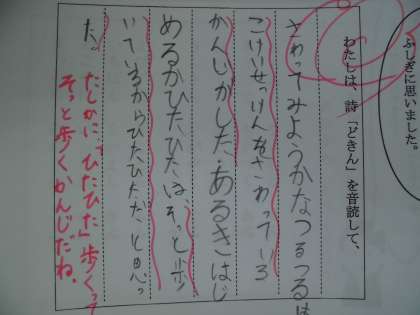 ふしぎに思いました。
わたしは、詩「どきん」を音読して、
さわってみようかなつるつるは
こけいせっけんをさわっている
かんじがした。あるきはじ
めるかひたひたは、そっと歩
いているからひたひただと思っ
た。
たしかに「ひたひた」歩くって
そっと歩くかんじだね。